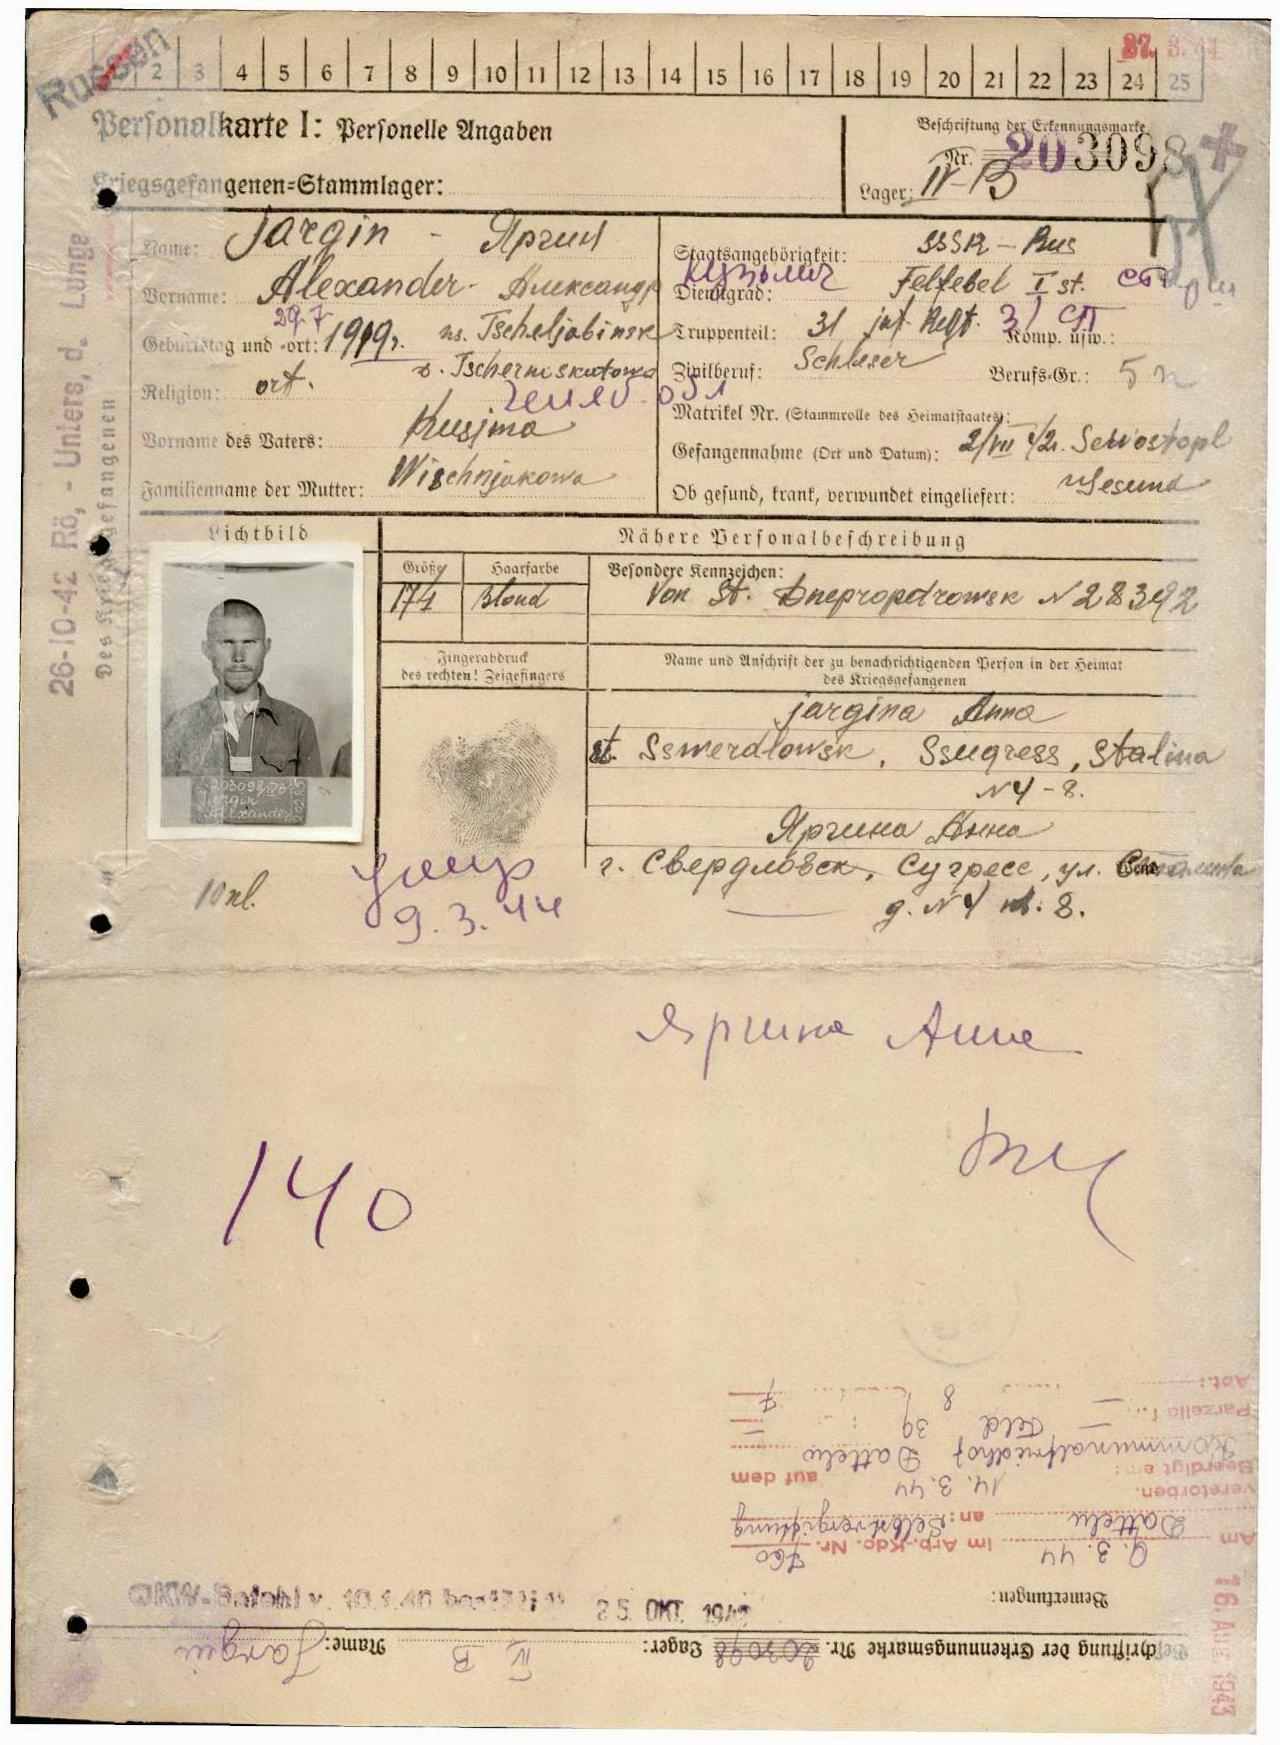 Russen
2 3 4 5 6 7 8 9 10 11 12 13 14 15 16 17 18 19 20 21 22 23 24 25
Personalkarte I: Personelle Angaben
Kriegsgefangenen=Stammlager:
Beschriftung der Erkennungsmarke
Nr. 203098
Lager: IV-B
Name: Jargin - Яргин
Vorname: Alexander - Александр
Кузьмич
29.7
Geburtstag und -ort: 1919г. ns. Tscheljabinsk
d. Tschermskutowo
Religion: ort.
Челяб. обл
Vorname des Vaters: Kusjma
Familienname der Mutter: Wischnjakowa
Staatsangehörigkeit: SSSR - Rus
Dienstgrad: Felfebel I st.
Truppenteil: 31 jnf. Regt. 31 СП Komp. usw.:
Zivilberuf: Schleser Berufs-Gr.: 5
Matrikel Nr. (Stammrolle des Heimatstaates):
Gefangennahme (Ort und Datum): 2/VII 42. Sewostopl
Ob gesund, krank, verwundet eingeliefert: Gesund
26-10-42 Rö, - Unters, d. Lunge
Des Kriegsgefangenen
Lichtbild
Nähere Personalbeschreibung
Größe Haarfarbe Besondere Kennzeichen:
174 Blond Von St. Dnepropedrowsk N 28392
Fingerabdruck
des rechten! Zeigefingers
Name und Anschrift der zu benachrichtigenden Person in der Heimat
des Kriegsgefangenen
Jargina Anna
st. Sswerdlowsk, Ssugress, Stalina
N4 - 8.
Яргина Анна
г. Свердловск, Сугресс, ул. Сталина
д. N4 кв. 8.
203098/IVB
Jargin
Alexander
умер
9. 3. 44
Яргина Анна
140
Am 9. 3. 44 im Arb.-Kdo. Nr. 760
Datteln an: Selbstvergiftung
verstorben.
Beerdigt am: 14. 3. 44 auf dem
Kommunalfriedhof Datteln
Parzelle I.: Feld 39
Abt.: 8 7
Bemerkungen:
OKW-Befehl v. 10.1.40
25. OKT. 194
Beschriftung der Erkennungsmarke Nr. 203098 Lager: IV B Name: Jargin
16. Aug 1943